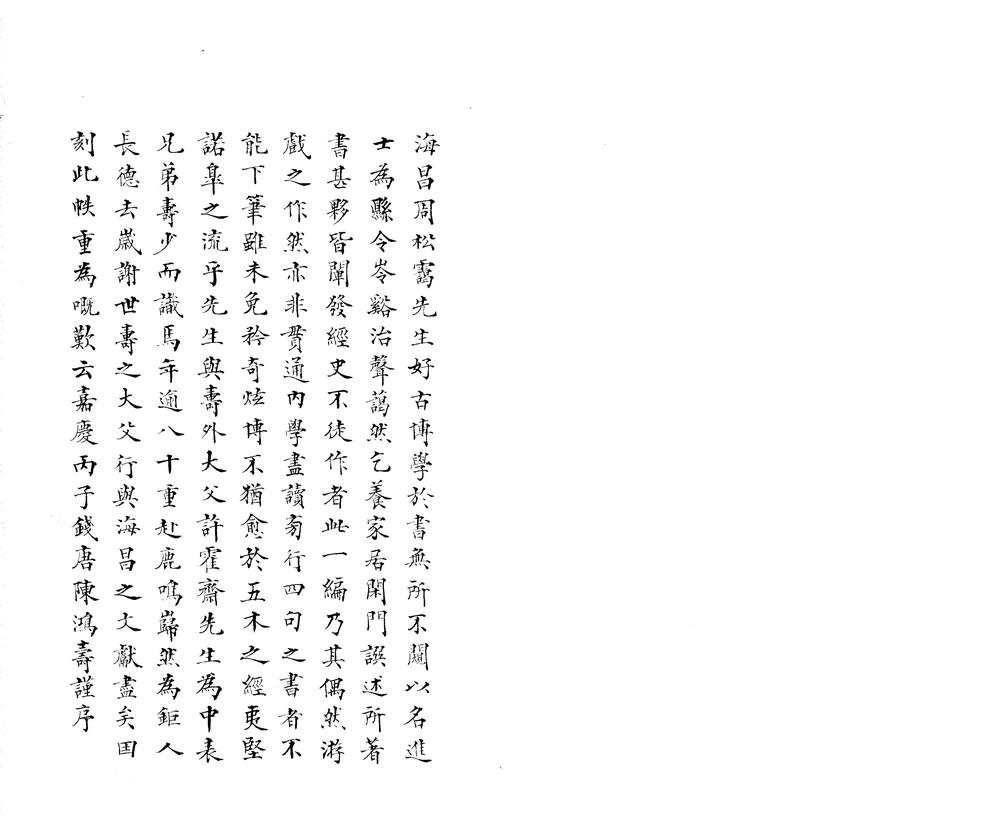 海昌周松靄先生好古博學於書無所不闚以名進
士為縣令岑谿治聲藹然乞養家居閑門譔述所著
書甚夥皆闡發經史不徒作者此一編乃其偶然游
戲之作然亦非貫通內學盡讀旁行四句之書者不
能下筆雖未免矜奇炫博不猶愈於五木之經夷堅
諾臯之流乎先生與壽外大父許霍齋先生為中表
兄弟壽少而識焉年逾八十重赴鹿鳴巋然為鉅人
長德去歲謝世壽之大父行與海昌之文獻盡矣因
刻此帙重為嘅歎云嘉慶丙子錢唐陳鴻壽謹序